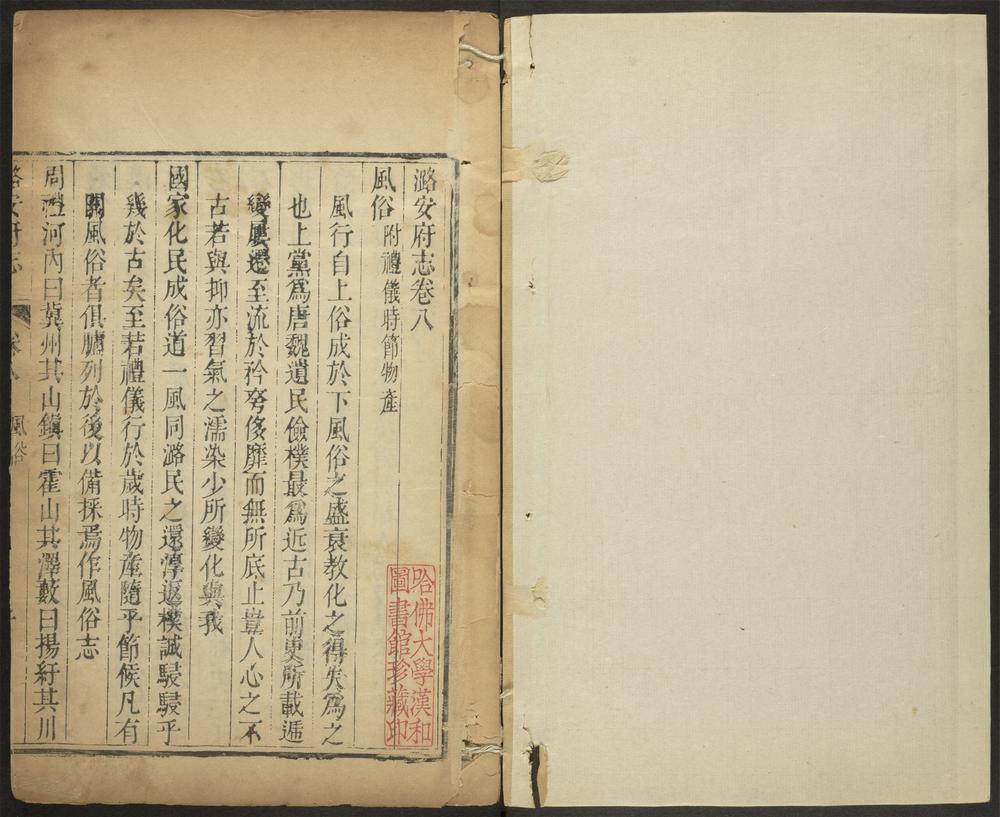 潞安府志卷八
風俗 附禮儀時節物產
風行自上俗成於下風俗之盛衰教化之得失為之
也上黨為唐魏遺民儉樸最為近古乃前吏所載遞
變屢遷至流於矜夸侈靡而無所底止豈人心之不
古若與抑亦習氣之濡染少所變化與我
國家化民成俗道一風同潞民之還淳返樸誠駸駸乎
幾於古矣至若禮儀行於歲時物產隨乎節候凡有
關風俗者俱臚列於後以備採焉作風俗志
周禮河內曰冀州其山鎮曰霍山其澤藪曰揚紆其川
潞安府志
風俗
哈佛大學漢和
圖書館珍藏印